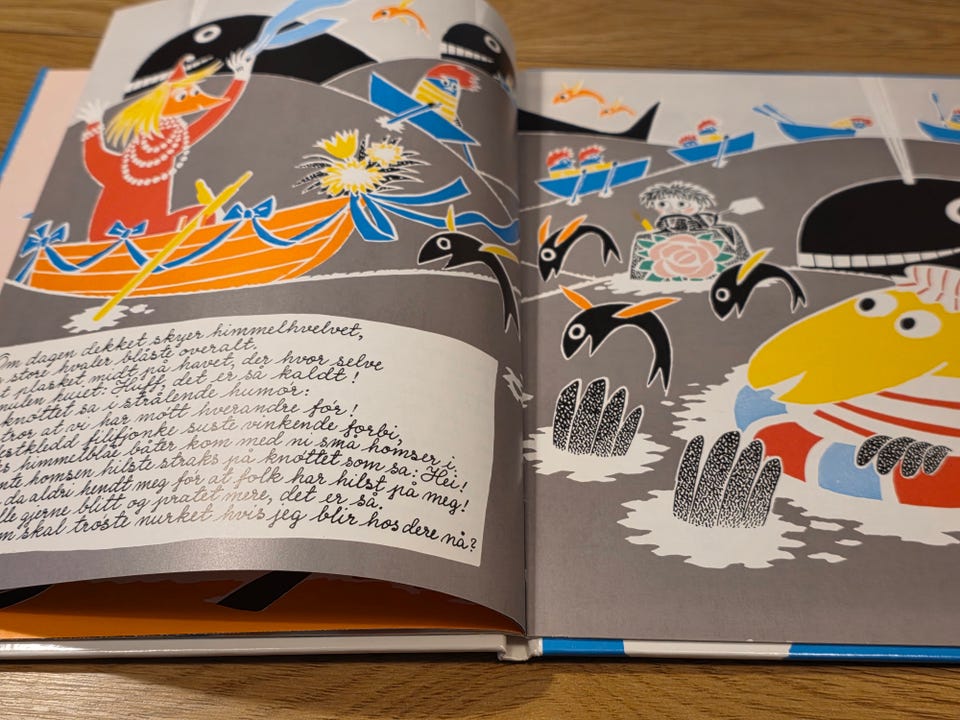 Om dagen dekket skyer himmelhvelvet,
store hvaler blåste overalt.
plasket midt på havet, der hvor selve
huiet: Huff, det er så kaldt!
knøttet sa i strålende humør:
tror at vi har møtt hverandre før!
filifjonke suste vinkende forbi,
himmelblåe båter kom med ni små homser i.
homsen hilste straks på knøttet som sa: Hei!
da aldri hendt meg før at folk har hilst på meg!
gjerne blitt og pratet mere, det er så.
skal trøste nurket hvis jeg blir hos dere nå?